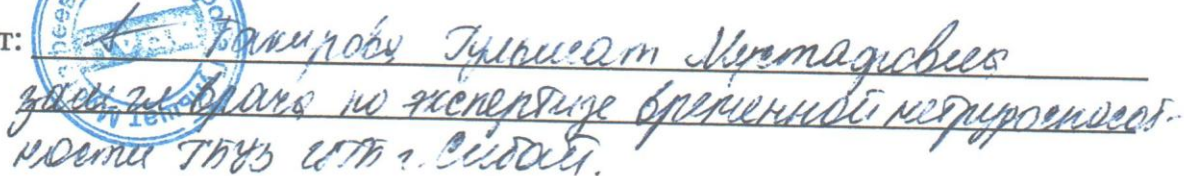 т: Бакирова Гульшат Мустафовна
зам. гл. врача по экспертизе временной нетрудоспособ-
ности ГБУЗ ЦГБ г. Сибай.